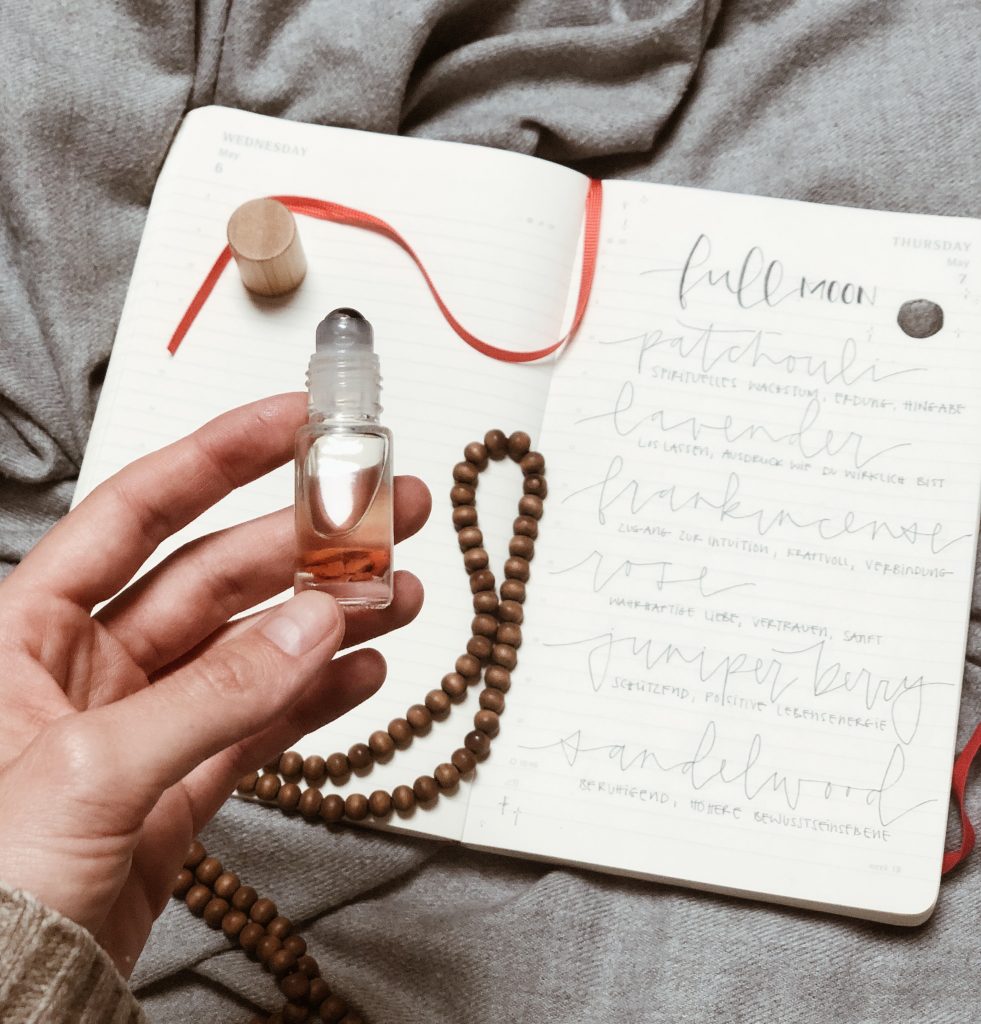 WEDNESDAY
May
6
THURSDAY
May
7
full MOON
patchouli
SPIRITUELLES WACHSTUM, ERDUNG, HINGABE
lavender
LOSLASSEN, AUSDRUCK WIE DU WIRKLICH BIST
frankincense
ZUGANG ZUR INTUITION, KRAFTVOLL, VERBINDUNG
rose
WAHRHAFTIGE LIEBE, VERTRAUEN, SANFT
juniper berry
SCHÜTZEND, POISITIVE LEBENSENERGIE
sandelwood
BERUHIGEND, HÖHERE BEWUSSTSEINSEBENE
week 19